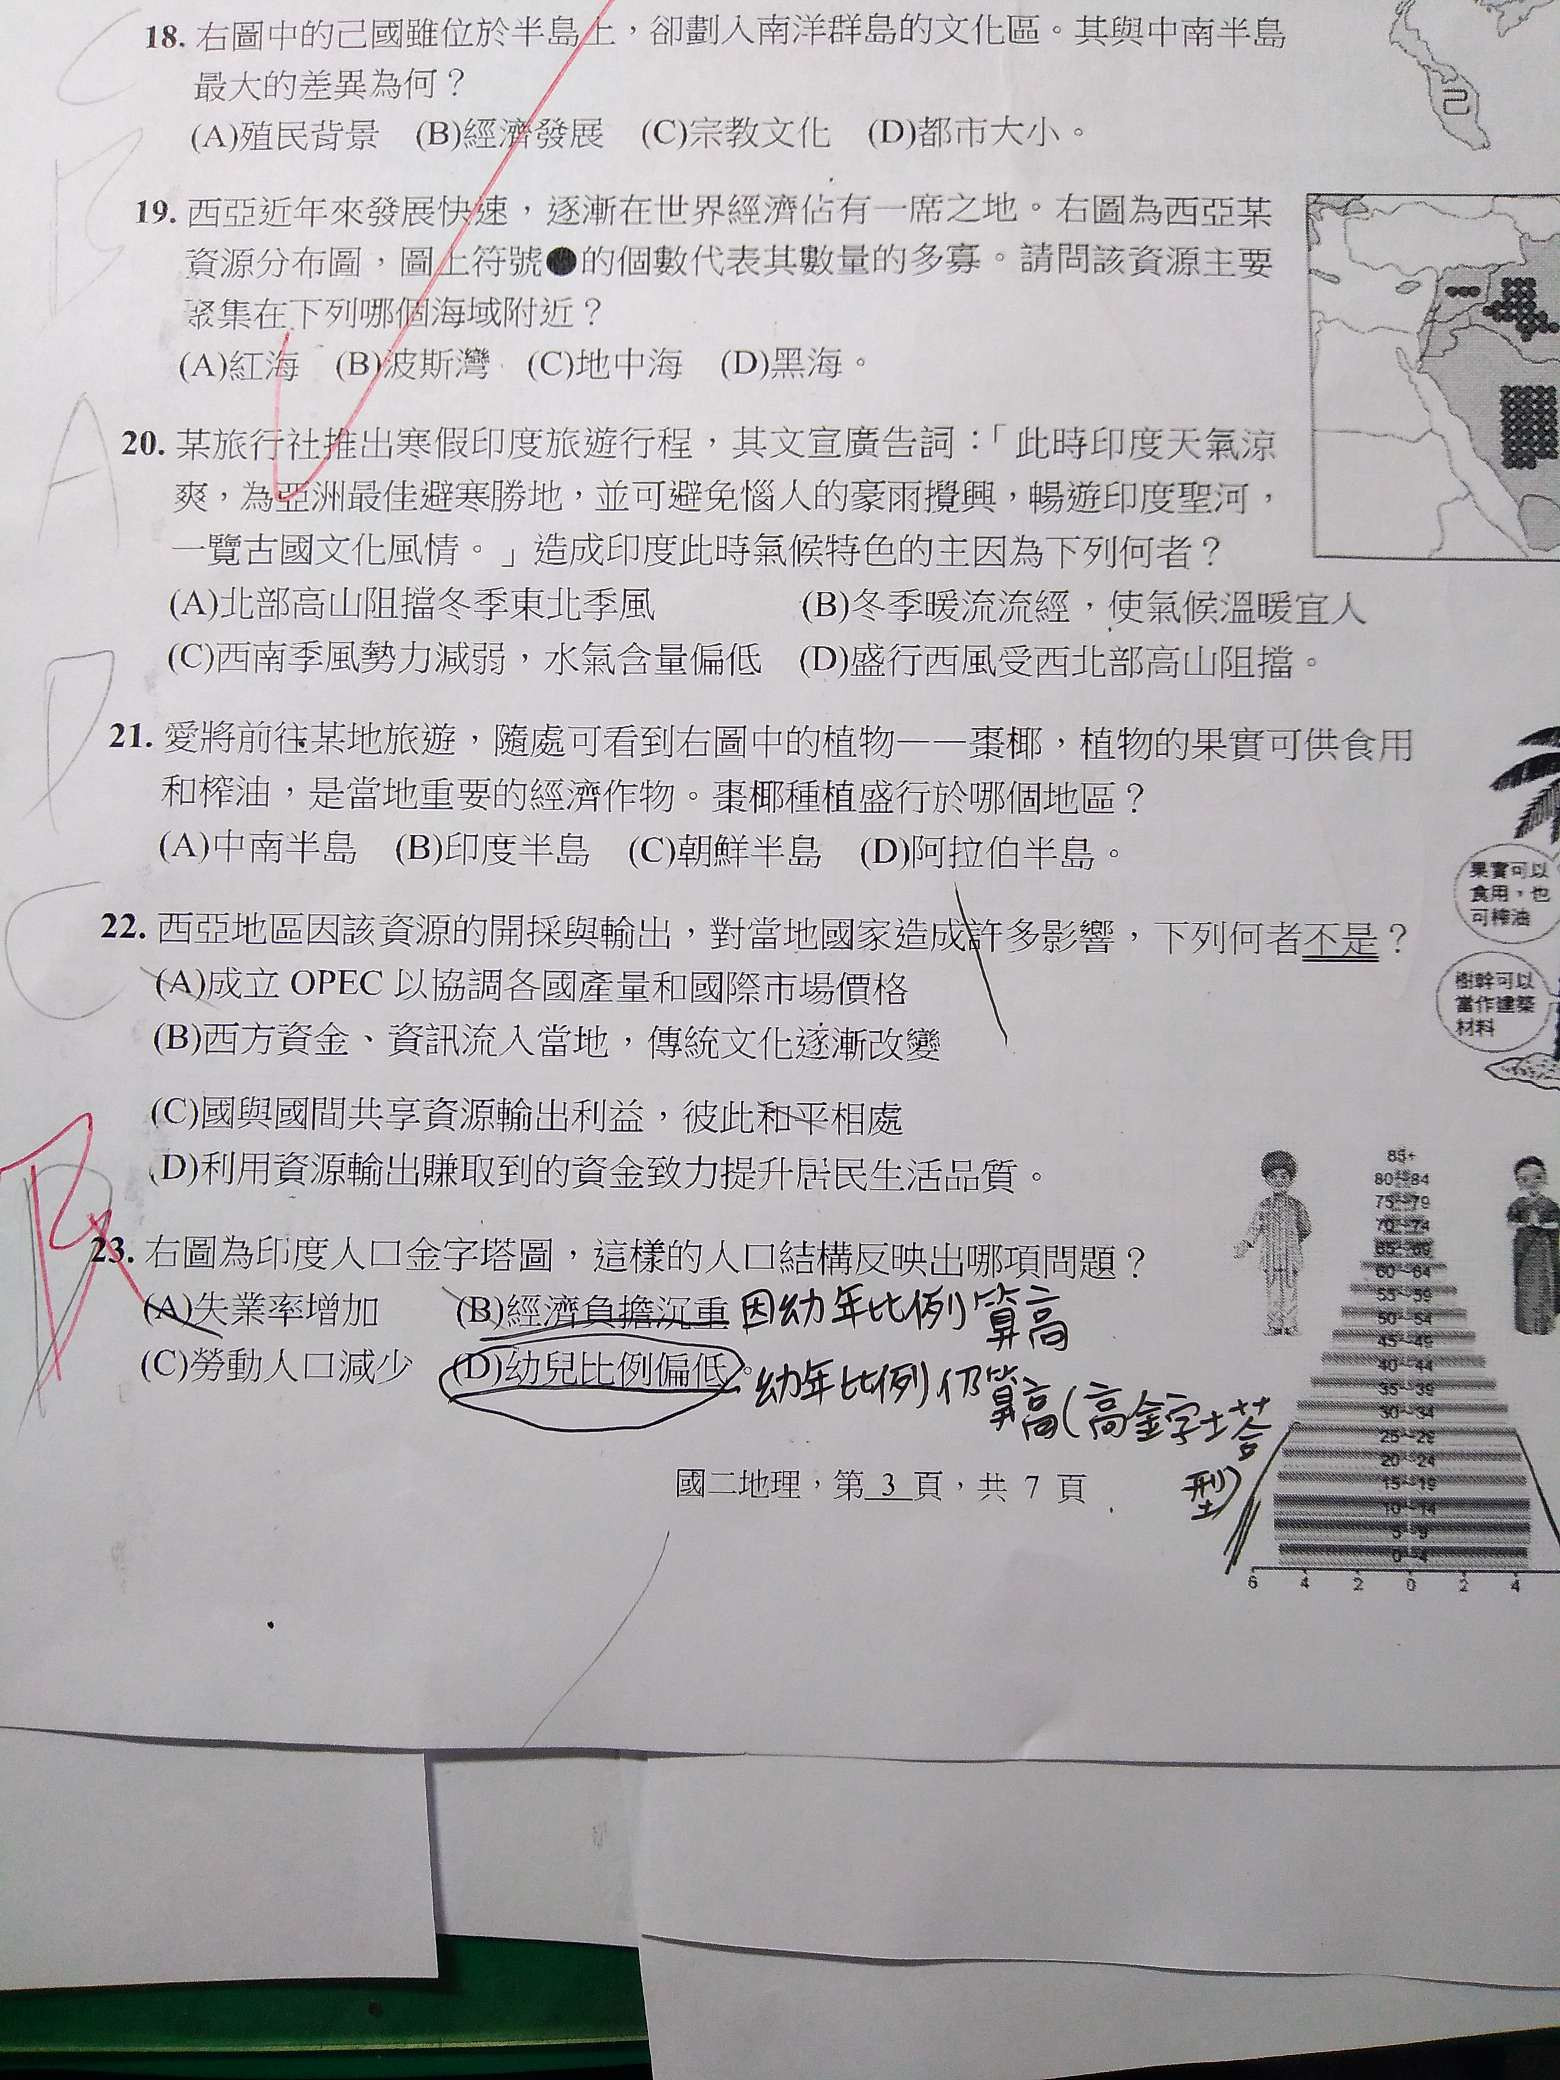 C
18. 右圖中的己國雖位於半島上，卻劃入南洋群島的文化區。其與中南半島
最大的差異為何？
(A)殖民背景 (B)經濟發展 (C)宗教文化 (D)都市大小。
己
B
19. 西亞近年來發展快速，逐漸在世界經濟佔有一席之地。右圖為西亞某
資源分布圖，圖上符號●的個數代表其數量的多寡。請問該資源主要
聚集在下列哪個海域附近？
(A)紅海 (B)波斯灣 (C)地中海 (D)黑海。
A
20. 某旅行社推出寒假印度旅遊行程，其文宣廣告詞：「此時印度天氣涼
爽，為亞洲最佳避寒勝地，並可避免惱人的豪雨攪興，暢遊印度聖河，
一覽古國文化風情。」造成印度此時氣候特色的主因為下列何者？
(A)北部高山阻擋冬季東北季風 (B)冬季暖流流經，使氣候溫暖宜人
(C)西南季風勢力減弱，水氣含量偏低 (D)盛行西風受西北部高山阻擋。
D
21. 愛將前往某地旅遊，隨處可看到右圖中的植物——棗椰，植物的果實可供食用
和榨油，是當地重要的經濟作物。棗椰種植盛行於哪個地區？
(A)中南半島 (B)印度半島 (C)朝鮮半島 (D)阿拉伯半島。
果實可以
食用，也
可榨油
樹幹可以
當作建築
材料
C
22. 西亞地區因該資源的開採與輸出，對當地國家造成許多影響，下列何者不是？
(A)成立 OPEC 以協調各國產量和國際市場價格
(B)西方資金、資訊流入當地，傳統文化逐漸改變
(C)國與國間共享資源輸出利益，彼此和平相處
(D)利用資源輸出賺取到的資金致力提升居民生活品質。
23. 右圖為印度人口金字塔圖，這樣的人口結構反映出哪項問題？
(A)失業率增加 (B)經濟負擔沉重 因幼年比例算高
(C)勞動人口減少 (D)幼兒比例偏低。 幼年比例仍算高(高金字塔
型)
85+
80~84
75~79
70~74
65~69
60~64
55~59
50~54
45~49
40~44
35~39
30~34
25~29
20~24
15~19
10~14
5~9
0~4
6 4 2 0 2 4
國二地理，第 3 頁，共 7 頁